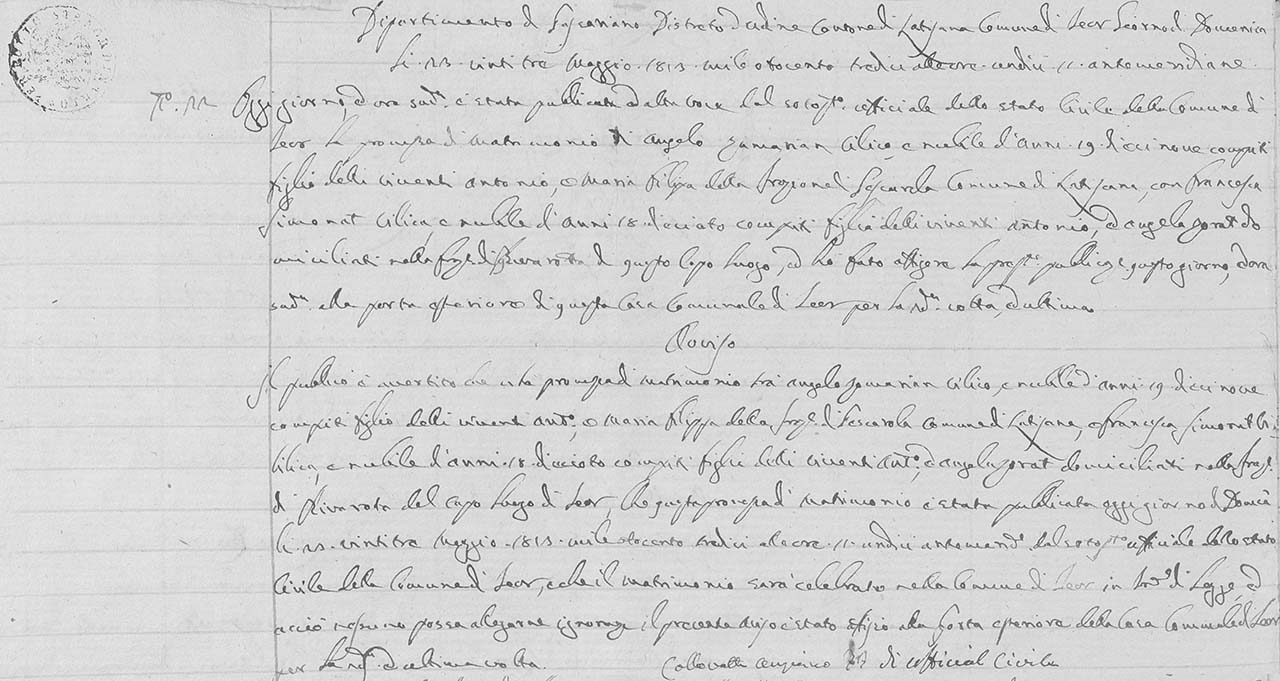 Dipartimento di Passeriano Distreto d'Udine Cantone di Latisana Comune di Teor Teor nod. Domenica
li 23 vintitre Maggio 1813 mile otocento tredici alle ore undici 11 antemeridiane
N°. 22 Oggi giorno, ed ora sudª. è stata publicata ad alta voce dal sotosᵗᵒ. Ufficiale dello stato Civile della Comune di
Teor la promessa di Matrimonio di Angelo Zamarian vilico, e nubile d'anni 19 diecinove compiti
figlio delli viventi Antonio, e Maria Filipa della frazione di Pescarola Comune di Latisana, con Francesca
Simonat vilica e nubile d'anni 18 dicioto compiti figlia delli viventi Antonio, ed Angela Zorat do
miciliati nella fraz. di Rivarota di questo Capo Luogo, ed ho fato affigere la presᵗᵉ. publicaᵉ questo giorno, ed ora
sudª. alla porta esteriore di questa Casa Comunale di Teor per la 2dª. volta, ed ultima
Avviso
Il publico è avvertito che la promessa di Matrimonio tra Angelo Zamarian vilico, e nubile d'anni 19 diecinove
compiti figlio delli viventi Antº., e Maria Filippa della frazᵉ. di Pescarola Comune di Latisana, e Francesca Simonat
vilica, e nubile d'anni 18 dicioto compiti figlia delli viventi Antº., ed Angela Zorat domiciliati nella frazᵉ.
di Rivarota del Capo Luogo di Teor, che questa promessa di Matrimonio è stata publicata oggi giorno di Domcª
li 23 vintitre Maggio 1813 mile otocento tredici alle ore 11 undici antemerdᵉ. dal sotosᵗᵒ ufficiale dello stato
Civile della Comune di Teor, e che il Matrimonio sarà celebrato nella Comune di Teor in di Legge, ed
acciò nessuno possa allegarne ignoranza il presente aviso è stato affisso alla Porta esteriore della Casa Comunale di Teor
per la 2dª. ed ultima volta. Collovatti di Ufficial Civile